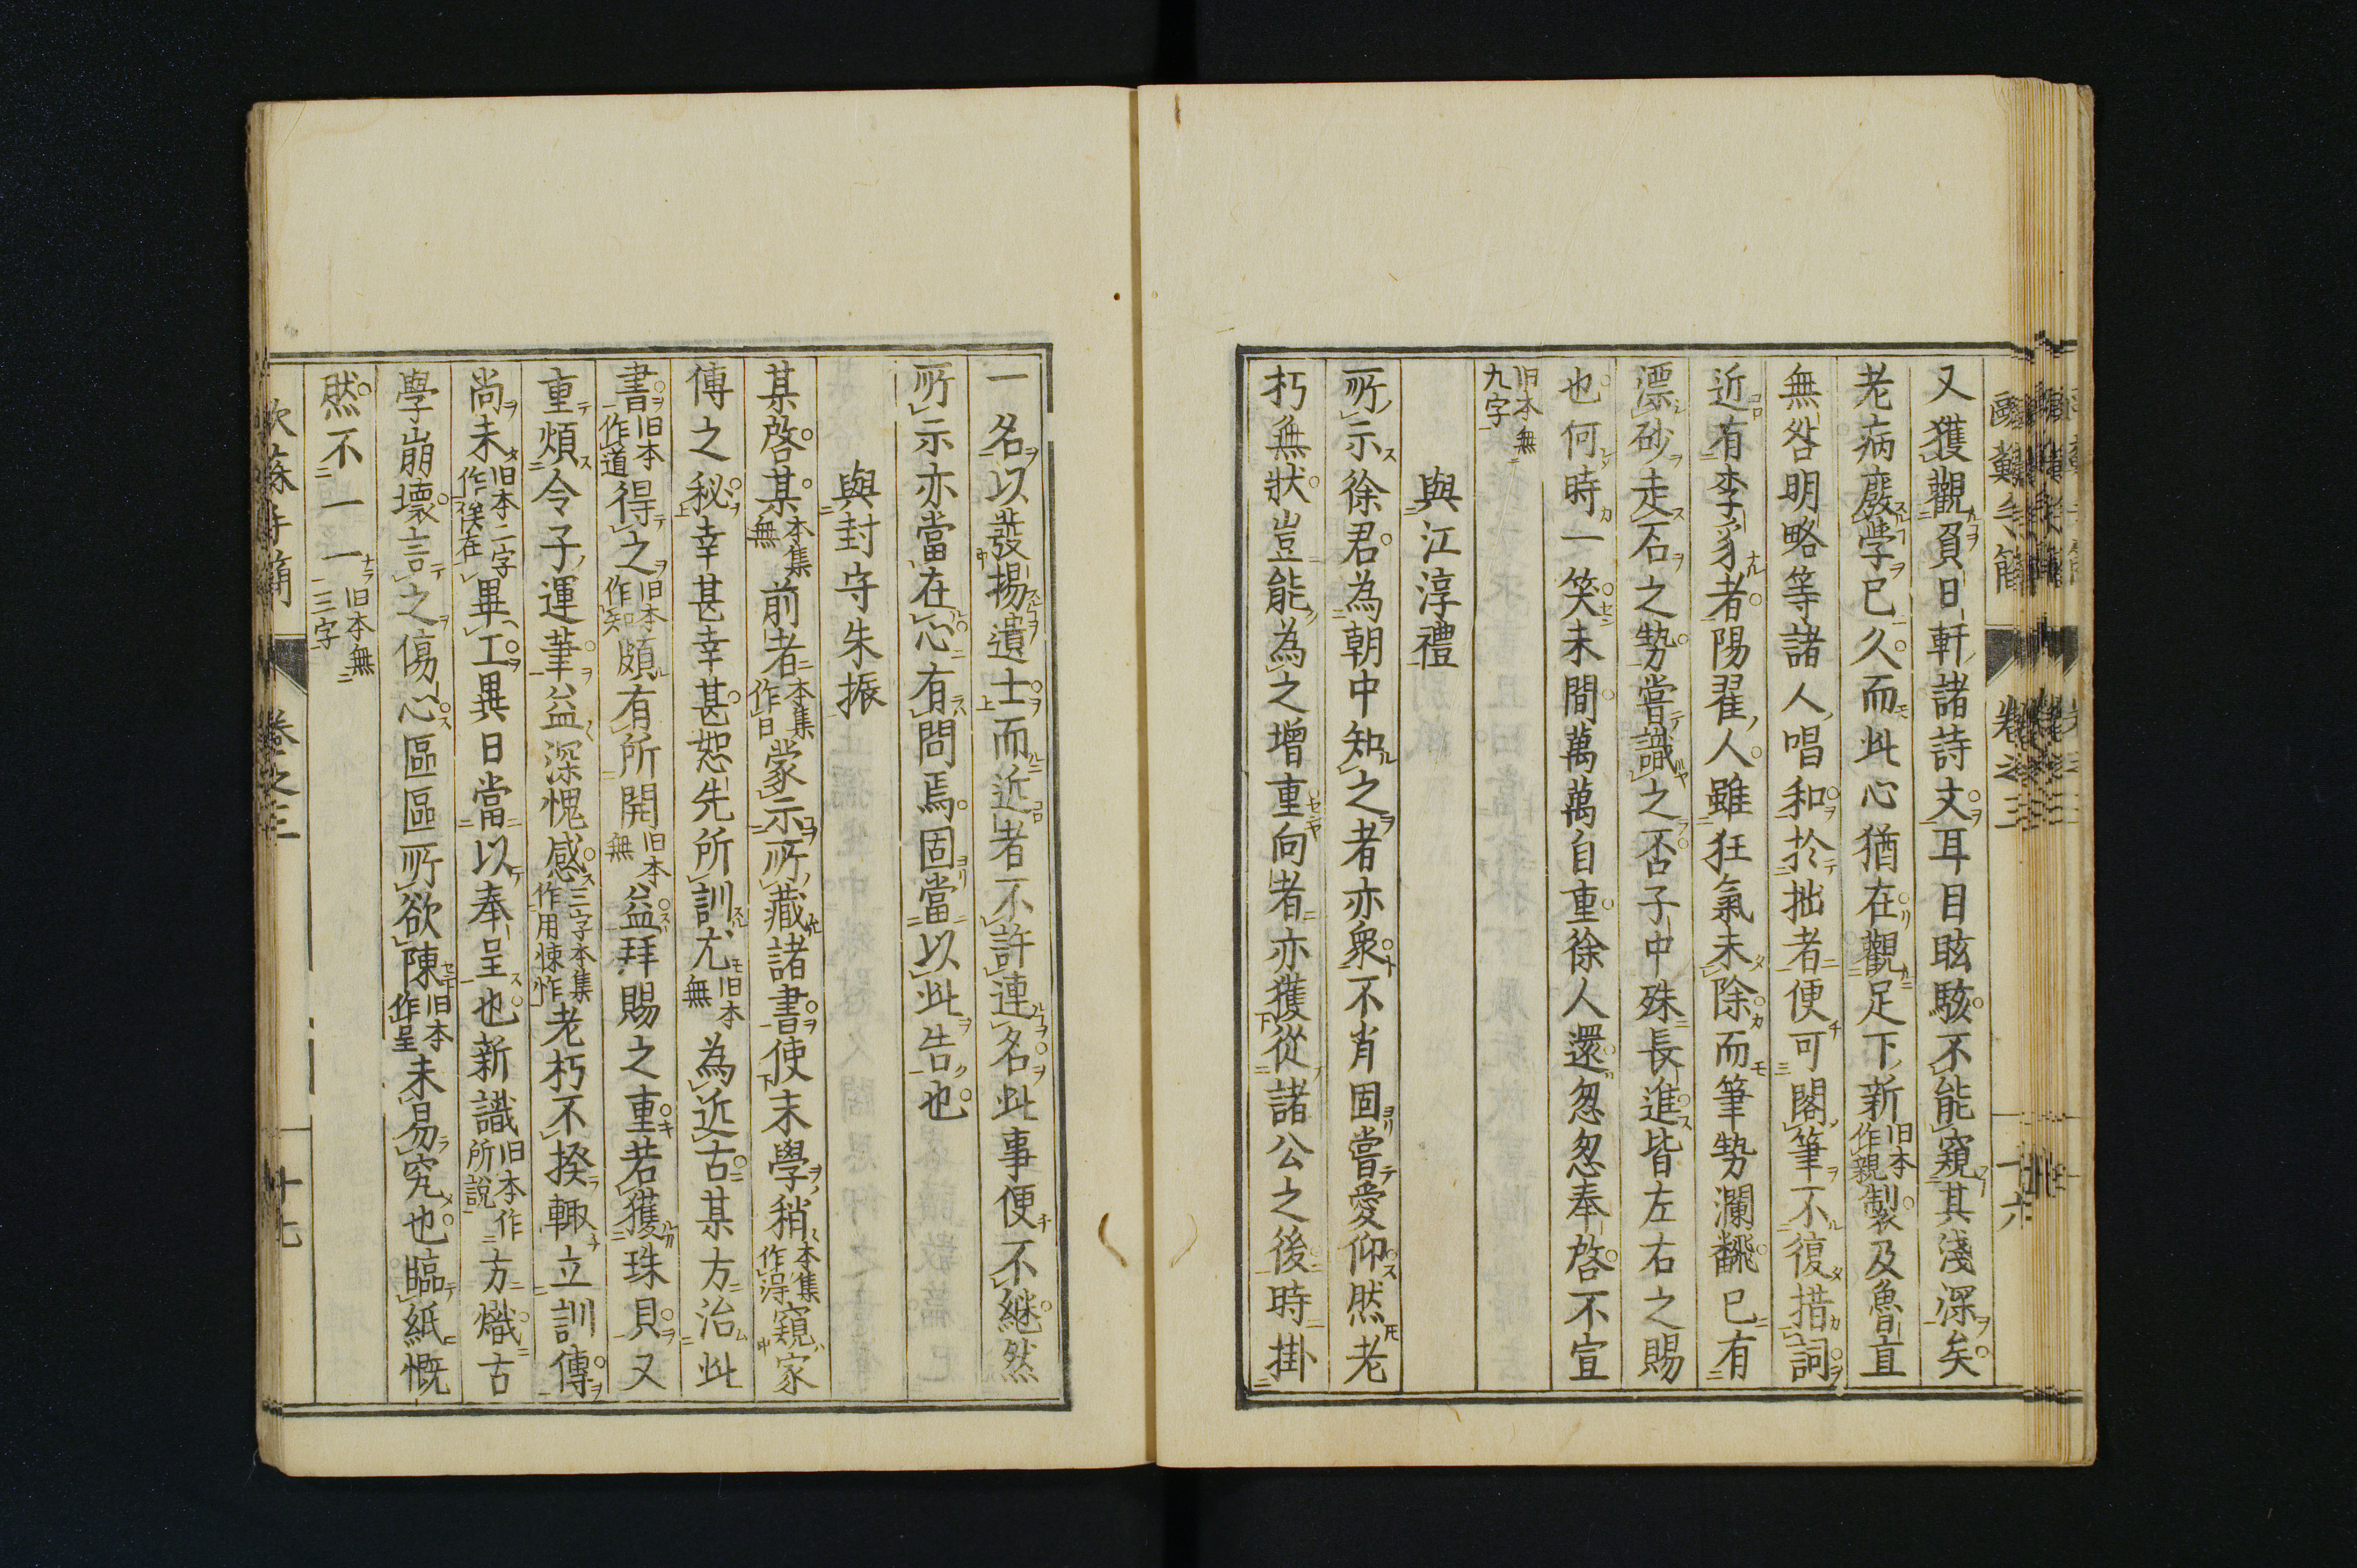 又獲觀負日軒諸詩文耳目眩駭不能窺其淺深矣
老病廢學已久而此心猶在觀足下新旧本作親製及魯直
無咎明略等諸人唱和於拙者便可閣筆不復措詞
近有李豸者陽翟人雖狂氣未除而筆勢瀾飜已有
漂砂走石之勢嘗識之否子中殊長進皆左右之賜
也何時一笑未間萬萬自重徐人還怱怱奉啓不宣
旧本無九字
與江淳禮
所示徐君為朝中知之者亦衆不肖固嘗愛仰然老
朽無狀豈能為之增重向者亦獲從諸公之後時掛
一名以發揚遺士而近者不許連名此事便不継然
所示亦當在心有問焉固當以此告也
與封守朱振
某啓某本集無前者本集作日蒙示所藏諸書使末學稍本集作得窺家
傳之秘幸甚幸甚恕先所訓尤旧本無為近古某方治此
書旧本作道得之旧本作知矣頗有所開旧本無益拜賜之重若獲珠貝又
重煩令子運筆益深愧感三字本集作用悚怍老朽不揆輙立訓傳
尚未旧本二字作俟在畢工異日當以奉呈也新識旧本作所說方熾古
學崩壞言之傷心區區所欲陳旧本作呈未易究也臨紙慨
然不一一旧本無三字
歐蘇手簡 卷之三 十七